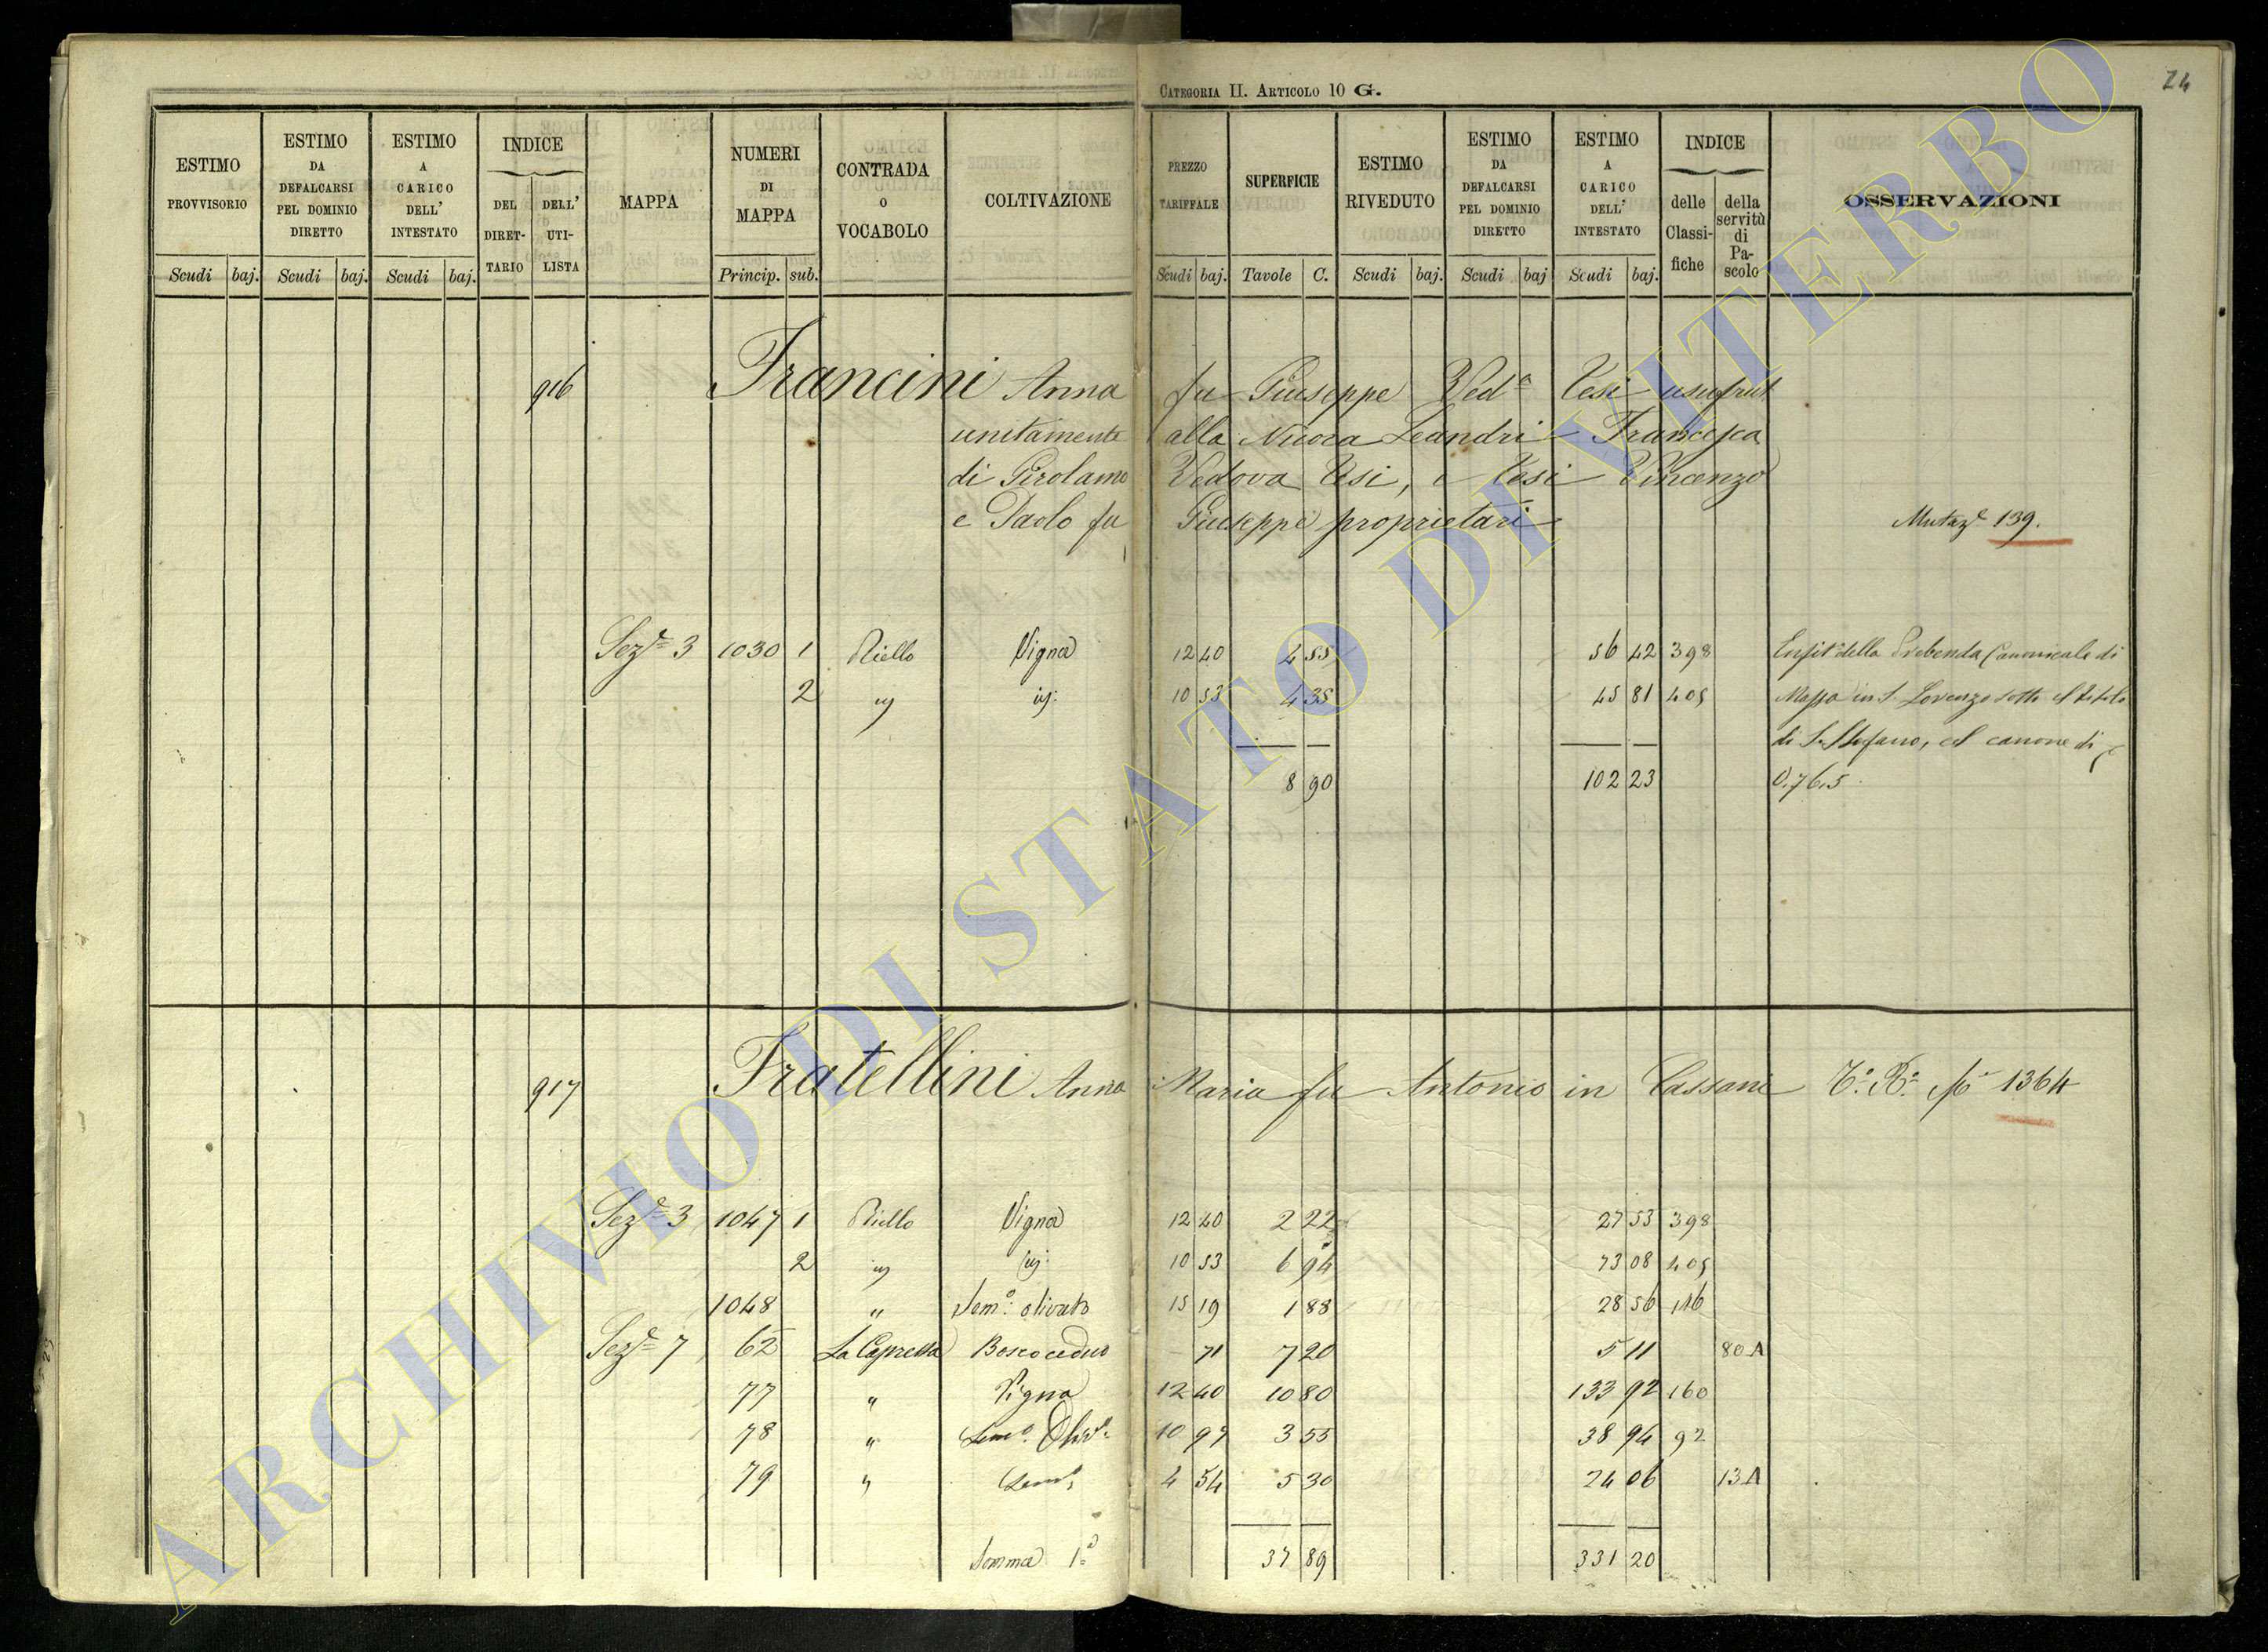 CATEGORIA II. ARTICOLO 10 G.
24
ESTIMO PROVVISORIO Scudi baj.
ESTIMO DA DEFALCARSI PEL DOMINIO DIRETTO Scudi baj.
ESTIMO A CARICO DELL' INTESTATO Scudi baj.
INDICE DEL DIRETTARIO DELL' UTILISTA
MAPPA
NUMERI DI MAPPA Princip. sub.
CONTRADA O VOCABOLO
COLTIVAZIONE
PREZZO TARIFFALE Scudi baj.
SUPERFICIE Tavole C.
ESTIMO RIVEDUTO Scudi baj.
ESTIMO DA DEFALCARSI PEL DOMINIO DIRETTO Scudi baj
ESTIMO A CARICO DELL' INTESTATO Scudi baj.
INDICE delle Classifiche della servitù di Pascolo
OSSERVAZIONI
916 Francini Anna fu Giuseppe Ved.a Tesi usufrut
unitamente alla Nuora Leandri Francesca
di Girolamo Vedova Tesi, e Tesi Vincenzo
e Paolo fu Giuseppe proprietari
Mutaz.e 139.
Sez.e 3 1030 1 Riello Vigna 12 40 4 55 56 42 398 Enfit.a della Prebenda Canonicale di
2 " id: 10 53 4 35 45 81 405 Massa in S. Lorenzo sotto il titolo
di S. Stefano, col canone di
8 90 102 23 0,76,5
917 Fratellini Anna Maria fu Antonio in Cassani 1364
Sez.e 3 1047 1 Riello Vigna 12 40 2 22 27 53 398
2 " id: 10 53 6 94 73 08 405
1048 " Sem.o olivato 15 19 1 88 28 56 116
Sez.e 7 62 La Capretta Bosco ceduo 71 7 20 5 11 80 A
77 " Vigna 12 40 10 80 133 92 160
78 " Sem.o Oliv.o 10 97 3 55 38 94 92
79 " Sem.o 4 54 5 30 24 06 13 A
Somma 1.a 37 89 331 20
ARCHIVIO DI STATO DI VITERBO